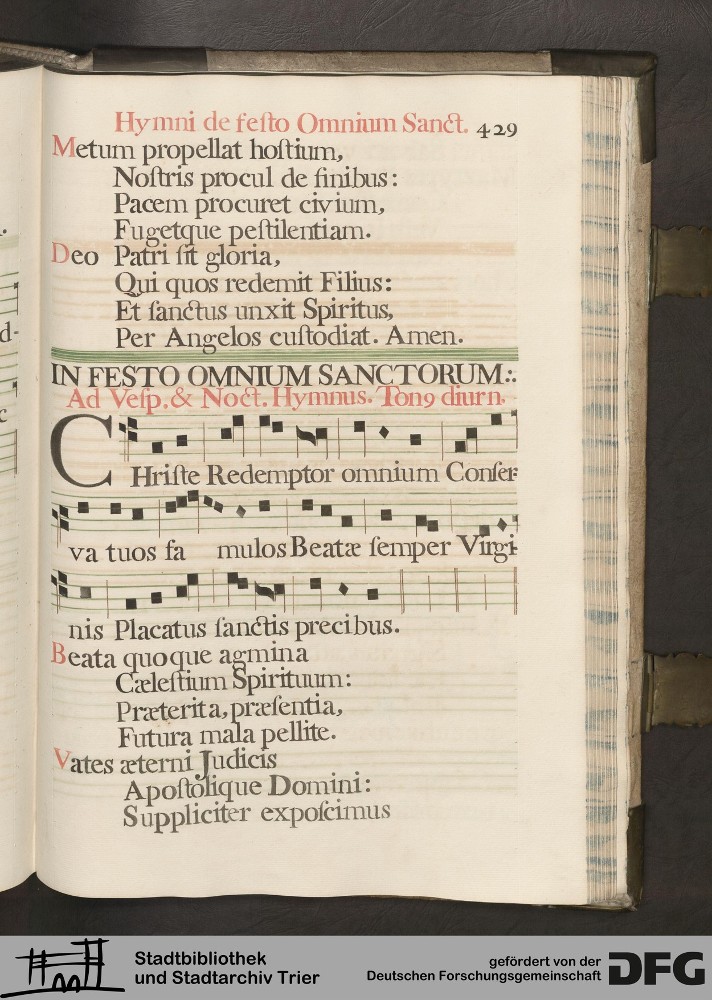 Hymni de feſto Omnium Sanct. 429
Metum propellat hoſtium,
Noſtris procul de finibus:
Pacem procuret civium,
Fugetque peſtilentiam.
Deo Patri ſit gloria,
Qui quos redemit Filius:
Et ſanctus unxit Spiritus,
Per Angelos cuſtodiat. Amen.
IN FESTO OMNIUM SANCTORUM:.
Ad Veſp. & Noct. Hymnus. Ton9 diurn.
CHriſte Redemptor omnium Conſer-
va tuos fa mulos Beatæ ſemper Virgi-
nis Placatus ſanctis precibus.
Beata quoque agmina
Cæleſtium Spirituum:
Præterita, præſentia,
Futura mala pellite.
Vates æterni Judicis
Apoſtolique Domini:
Suppliciter expoſcimus
d-
c
Stadtbibliothek
und Stadtarchiv Trier
gefördert von der
Deutschen Forschungsgemeinschaft
DFG